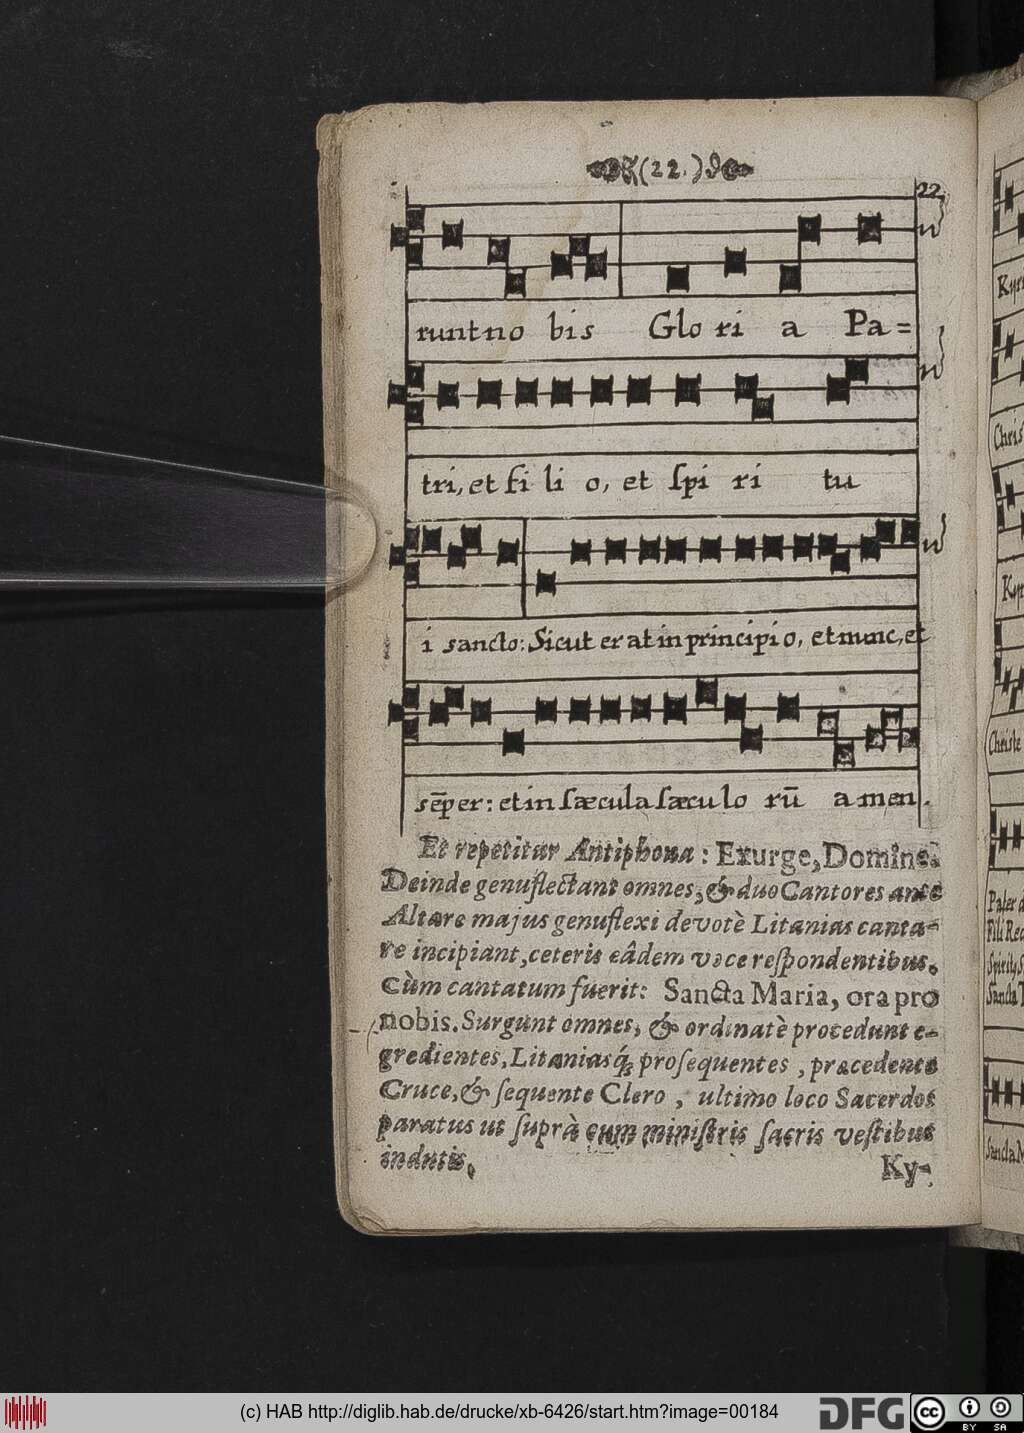 (22.)
22
runt no bis Glo ri a Pa=
tri, et fi li o, et ſpi ri tu
i sancto: Sicut erat in principio, et nunc, et
sēper: et in sæcula sæculo rū amen.
Et repetitur Antiphona: Exurge, Domine.
Deinde genuflectant omnes, & duo Cantores ante
Altare majus genuflexi devotè Litanias canta-
re incipiant, ceteris eâdem voce reſpondentibus.
Cùm cantatum fuerit: Sancta Maria, ora pro
nobis. Surgunt omnes, & ordinatè procedunt e-
gredientes, Litaniasq́; proſequentes, præcedente
Cruce, & ſequente Clero, ultimo loco Sacerdos
paratus ut ſuprà cum miniſtris ſacris veſtibus
indutis.
Ky-
Christe
Sancta M
(c) HAB http://diglib.hab.de/drucke/xb-6426/start.htm?image=00184
DFG
cc
BY SA